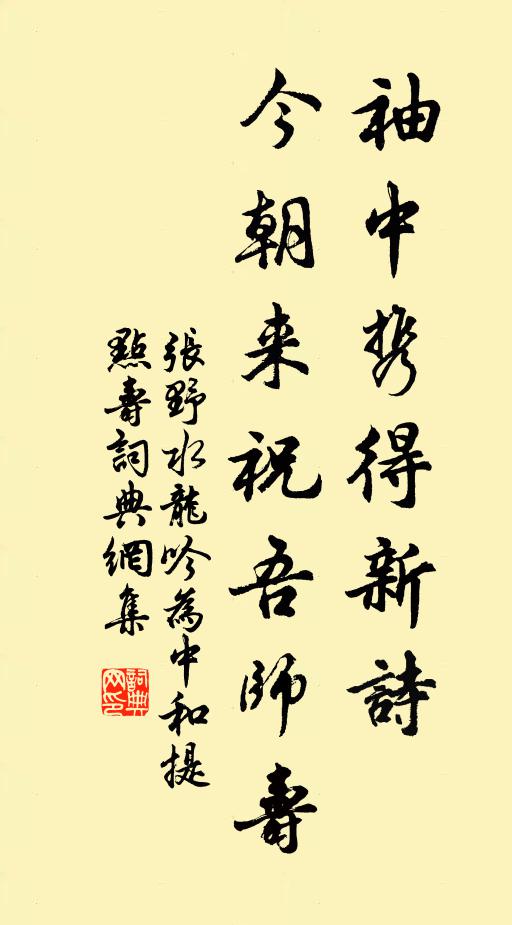 袖中携得新詩
今朝来祝吾師壽
張野水龍吟為中和提
點壽詞典網集
詞典網印